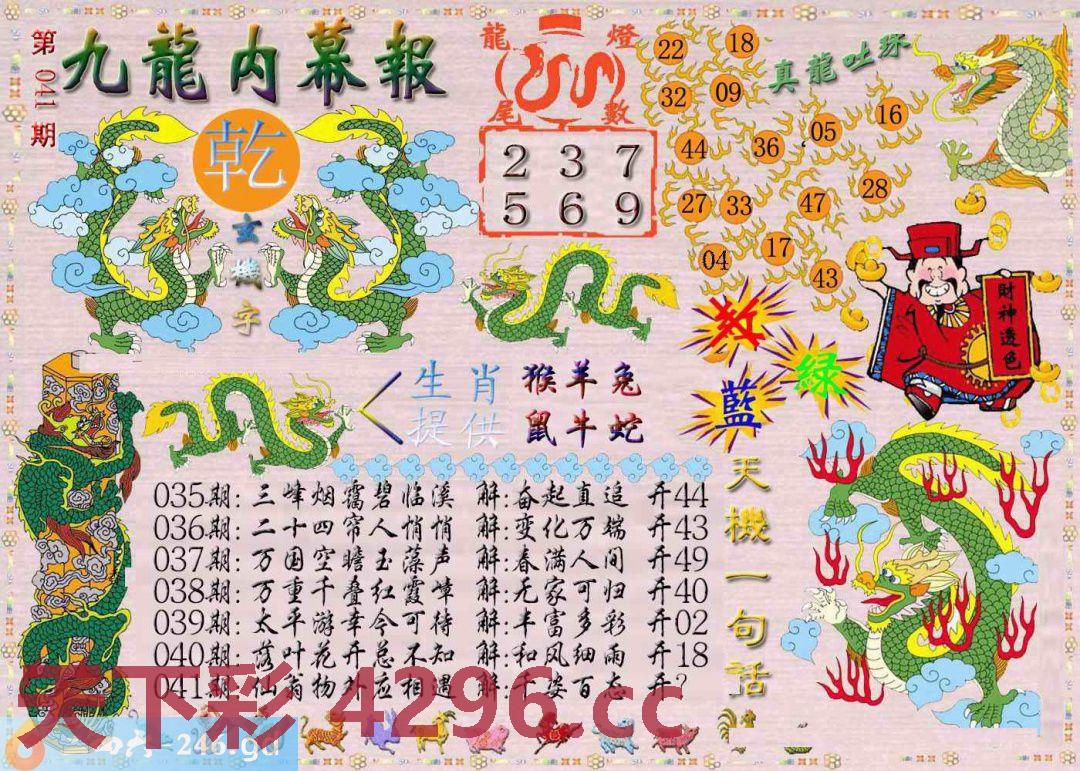 第041期
九龍内幕報
乾
玄機字
龍燈
尾數
2 3 7
5 6 9
22 18
32 09
44 36 05 16
27 33 47 28
04 17 43
真龍吐珠
紅
綠
藍
財神透色
生肖 猴羊兔
提供 鼠牛蛇
035期:三峰烟霭碧临溪 解:奋起直追 开44
036期:二十四帘人悄悄 解:变化万端 开43
037期:万国空瞻玉藻声 解:春满人间 开49
038期:万重千叠红霞嶂 解:无家可归 开40
039期:太平游幸今可待 解:丰富多彩 开02
040期:落叶花开总不知 解:和风细雨 开18
041期:仙翁物外应相遇 解:千姿百态 开?
天機一句話
天下彩 4296.cc
246.gd